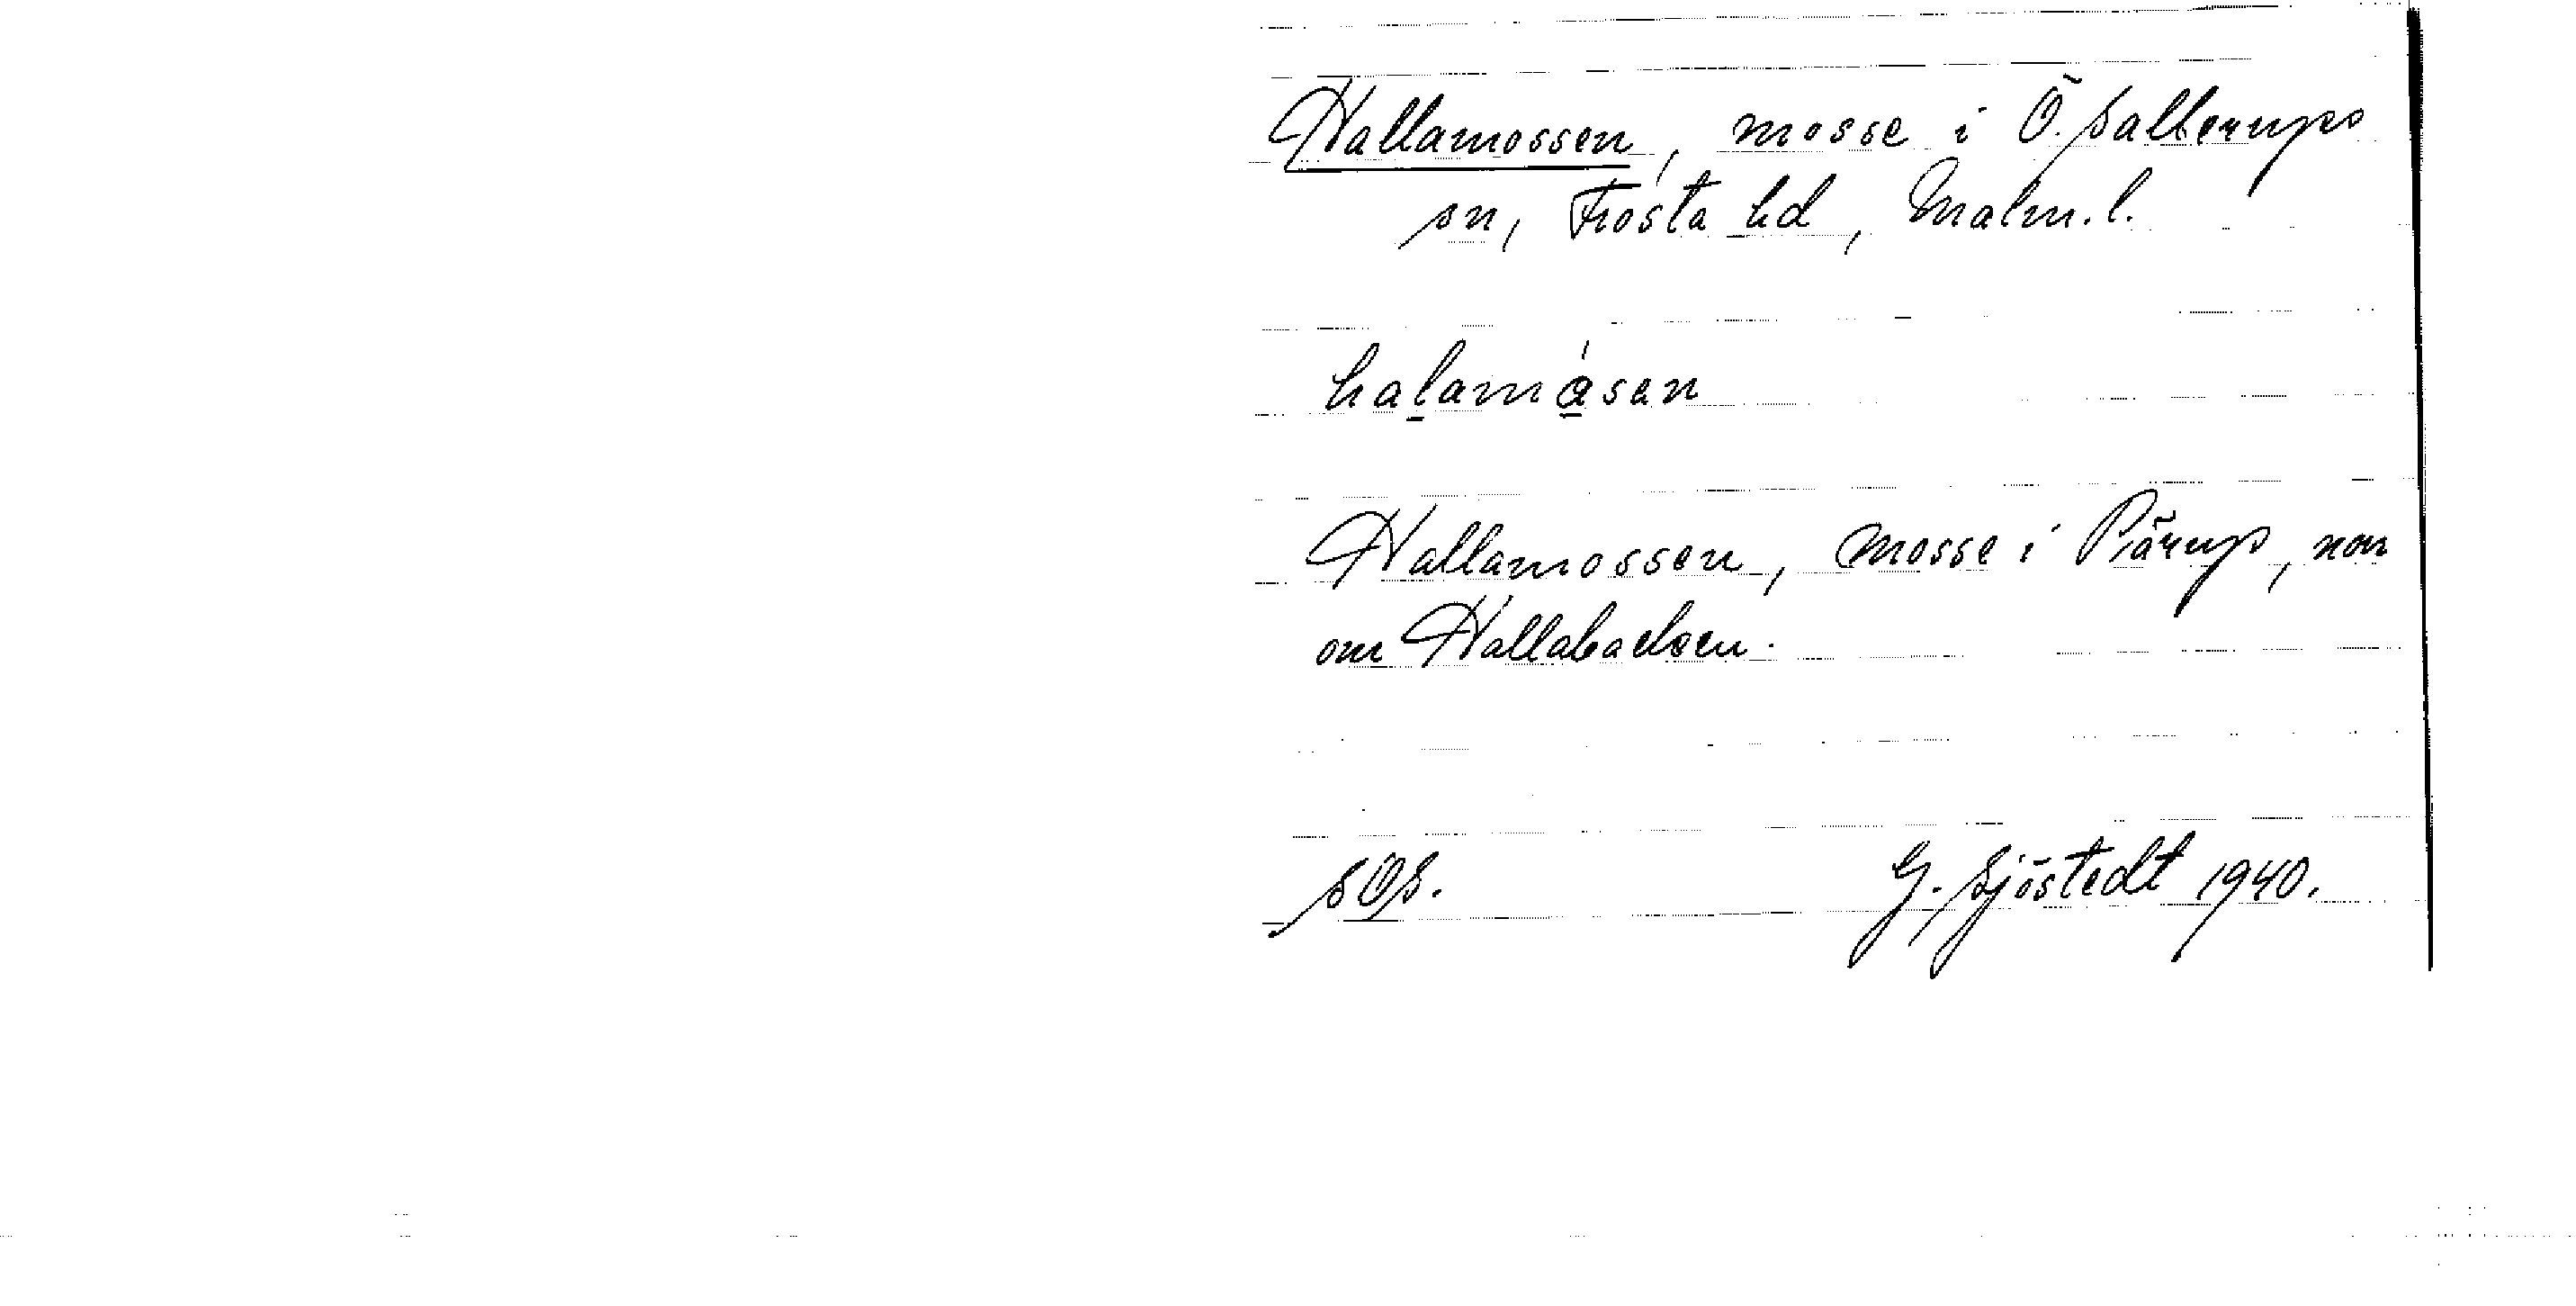 Hallamossen, mosse i Ö. Sallerups
sn, Frosta hd, Malm. l.
halamåsen
Hallamossen, mosse i Pärup, norr
om Hallabacken.
SOS. G. Sjöstedt 1940.